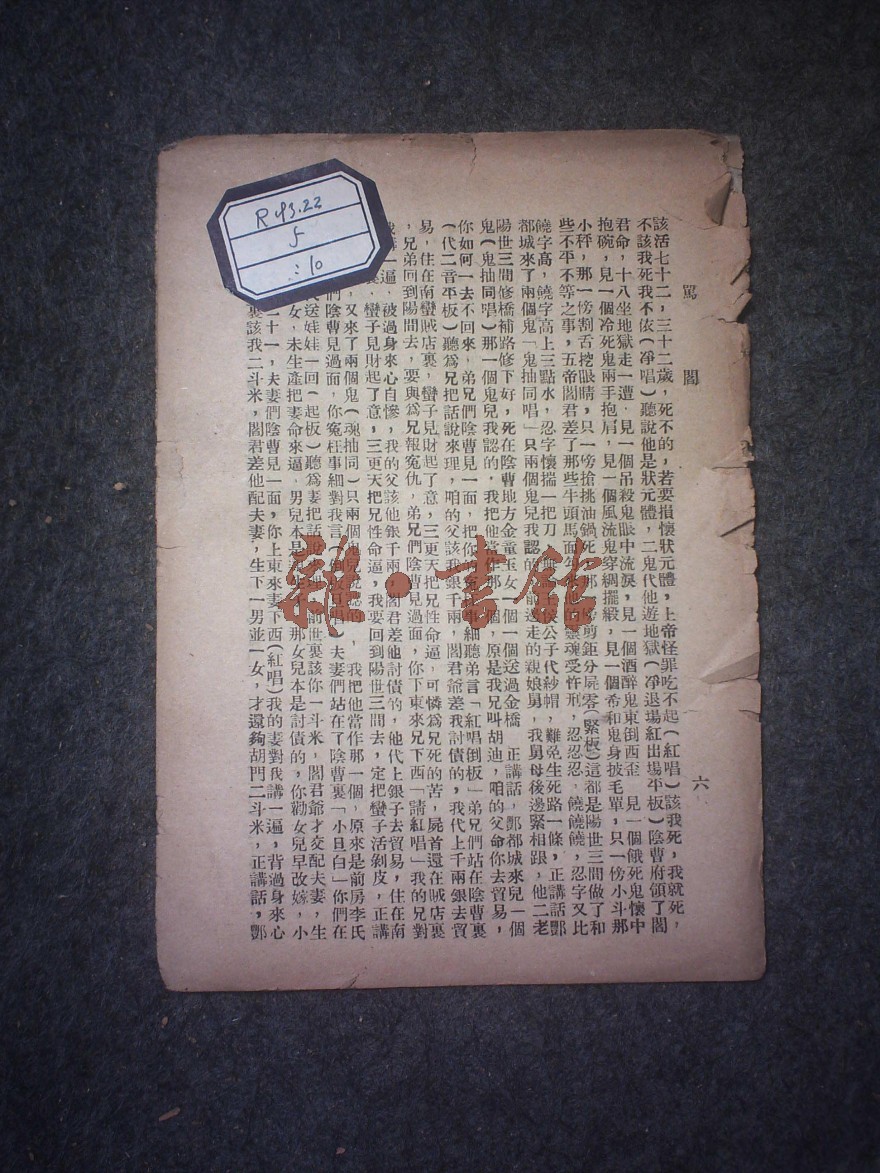 罵閻
六
該活七十二，三十二歲，死不的，若要損懷狀元體，上帝怪罪吃不起(紅唱)該我死，我就死，
不該我死我不依(凈唱)聽說他是狀元體，二鬼代他遊地獄(凈退場紅出場平板)陰曹府領了閣
君命，十八坐地獄走一遭，見一個吊殺鬼眼中流淚，見一個酒醉鬼東倒西歪，見一個餓死鬼懷中
抱碗，見一個冷死鬼兩手抱肩，見一個風流鬼穿綢擺緞，見一個希和鬼身披毛單，只一傍小斗那
小秤，那一傍割舌挖眼睛，只一傍搶挑油鍋死，那傍剪鉅分屍零(緊板)這都是陽世三間做了和
些不平不等之事，五帝閻君差了那些牛頭馬面靈魂受忤刑，忍忍忍，饒饒饒，忍字又比
饒字高，饒字高上三點水，忍字懷揣一把刀公子代紗帽，難免生死路一條，正講話酆
都城來了兩個鬼「鬼抽同唱」只兩個鬼兒我認的走的親娘舅，我舅母後邊緊相跟，他二老
陽世三間修橋補路修下好，死在陰曹地方金童玉女一個一個送過金橋　正講話，酆都城來兒一個
鬼(鬼抽同唱)那一個鬼兒我認的，我把他當作那一個，原是我兄叫胡迪，咱的父命你去貿易，
你如何一去不回來，弟兄們陰曹見一面，把你事細聽弟言「紅唱倒板」弟兄們站在陰曹裏
(代二音平板)聽爲兄把話說來理，咱的父該我銀千兩，閻君爺差我討債的，我代上千兩銀去貿
易，住在南蠻賊店裏，蠻子見財起了意，三更天把兄性命逼，可憐爲兄死的苦，屍首還在賊店裏
，兄弟回到陽間去，要與爲兄報冤仇，弟兄們陰曹見過面，你下東來兄下西「請紅唱」我的兄對
一遍，被過身來心自慘，我的父該他銀千兩，閻君差他討債的，他代上銀子去貿易，住在南
蠻子見財起了意，三更天把兄性命逼，我要回到陽世三間去，定把蠻子活剝皮，正講
，又來了兩個鬼(魂抽同)只兩個鬼兒認的，我把他當作那一個，原來是前房李氏
們陰曹見過面，你冤枉事細對我言唱)夫妻們站在了陰曹裏「小旦白」你們在
送娃娃一回(起板)聽爲妻把話說來理，前世裏該你一斗米，閻君爺才交配夫妻，生
女，未生產把妻命來逼，男兒本是那女兒本是討債的，你勸女兒早改嫁，小
二十一，夫妻們陰曹見一面，你上東來妻下西(紅唱)我的妻對我講一遍，背過身來心
裏該我二斗米，閻君差他配夫妻，生下一男並一女，才還夠胡門二斗米，正講話，酆
R 43.22
5
:10
雜·書館